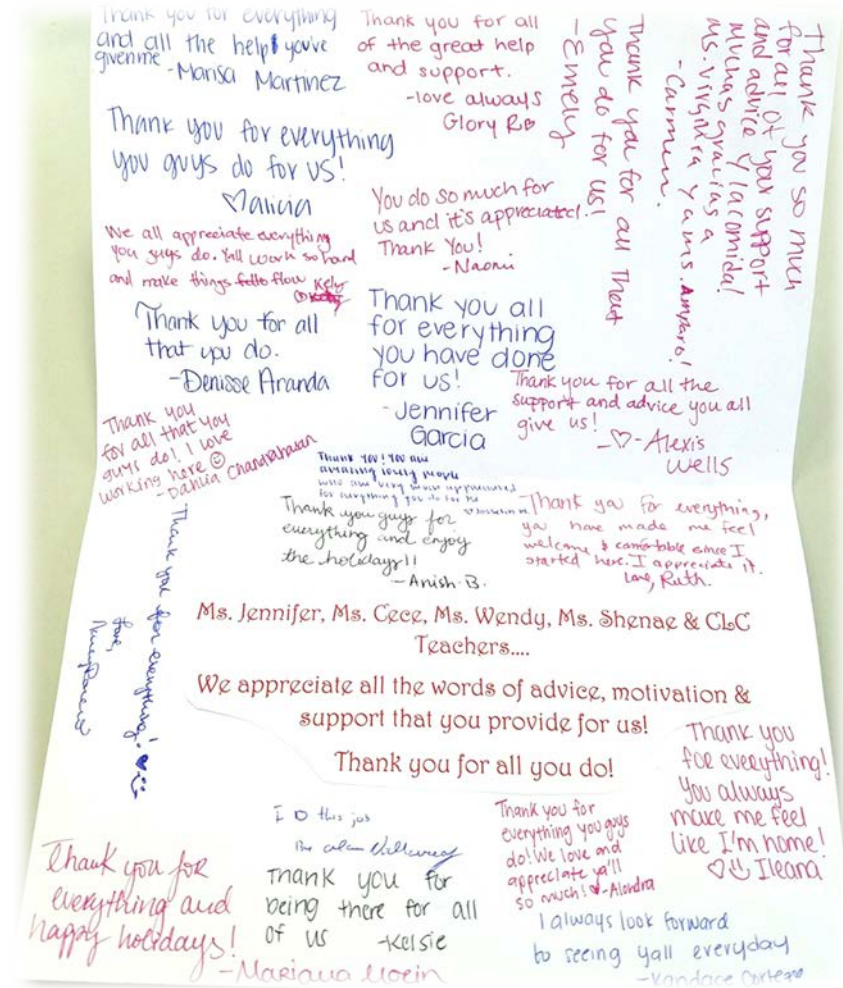 Thank you for everything
and all the help you've
given me
-Marisa Martinez
Thank you for all
of the great help
and support.
-love always
Glory R♡
Thank you for all that
you do for us!
-Emely
Thank you so much
for all of your support
and advice y la comida!
Muchas gracias a
Ms. Virginia y a Ms. Amparo!
-Carmen.
Thank you for everything
you guys do for us!
♡Malicia
You do so much for
us and it's appreciated!
Thank You!
-Naomi
We all appreciate everything
you guys do. Yall work so hard
and make things flow
Kely
Thank you for all
that you do.
-Denisse Aranda
Thank you all
for everything
you have done
for us!
-Jennifer
Garcia
Thank you for all the
support and advice you all
give us!
-♡-Alexis
Wells
Thank you
for all that you
guys do! I love
working here ☺
-Dahlia Chandrahasan
Thank you! You are
amazing lovely people
who are very much appreciated
for everything you do for me
Thank you guys for
everything and enjoy
the holidays!!
-Anish B.
Thank you for everything,
you have made me feel
welcome & comfortable since I
started here. I appreciate it.
Love, Ruth.
Thank you for everything! ♥☺
Love,
Ms. Jennifer, Ms. Cece, Ms. Wendy, Ms. Shenae & CLC
Teachers....
We appreciate all the words of advice, motivation &
support that you provide for us!
Thank you for all you do!
Thank you
for everything!
You always
make me feel
like I'm home!
♡☺ Ileana
I ♡ this job
Thank you for
everything you guys
do! We love and
appreciate ya'll
so much! ♥-Alondra
Thank you for
everything and
happy holidays!
-Mariana Morin
Thank you for
being there for all
of us -Kelsie
I always look forward
to seeing yall everyday
-Kandace